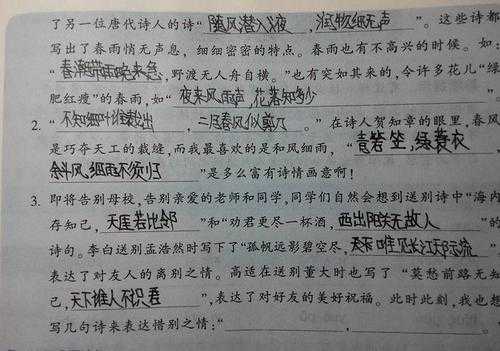 了另一位唐代诗人的诗“随风潜入夜，润物细无声”。这些诗都
写出了春雨悄无声息，细细密密的特点。春雨也有不高兴的时候。如
“春潮带雨晚来急，野渡无人舟自横。”也有突如其来的，令许多花儿“绿
肥红瘦”的春雨，如“夜来风雨声，花落知多少”
2. “不知细叶谁裁出，二月春风似剪刀。”在诗人贺知章的眼里，春风
是巧夺天工的裁缝，而我最喜欢的是和风细雨，“青箬笠，绿蓑衣，
斜风细雨不须归”是多么富有诗情画意啊！
3. 即将告别母校，告别亲爱的老师和同学，同学们自然会想到送别诗中“海内
存知己，天涯若比邻”和“劝君更尽一杯酒，西出阳关无故人”的
诗句。李白送别孟浩然时写下了“孤帆远影碧空尽，唯见长江天际流”，
表达了对友人的离别之情。高适在送别董大时也写了“莫愁前路无知
己，天下谁人不识君”，表达了对好友的美好祝福。此时此刻，我也想
写几句诗来表达惜别之情：“，。